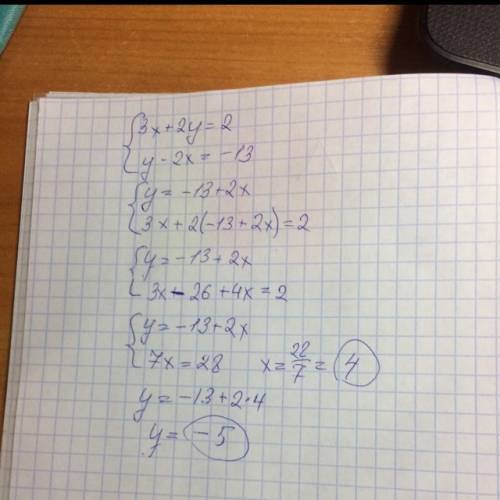 3x+2y=2
y-2x=-13
y=-13+2x
3x+2(-13+2x)=2
y=-13+2x
3x-26+4x=2
y=-13+2x
7x=28 x=28/7=4
y=-13+2·4
y=-5